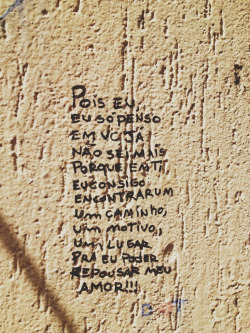 POIS EU,
EU SÓ PENSO
EM VC JÁ
NÃO SEI MAIS
PORQUE EM TI
EU CONSIGO
ENCONTRAR UM
UM CAMINHO,
UM MOTIVO,
UM LUGAR
PRA EU PODER
REPOUSAR MEU
AMOR!!!